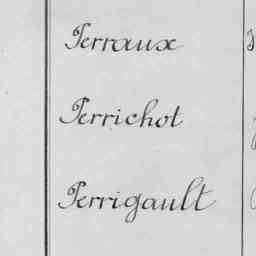 Perraux
Perrichot
Perrigault